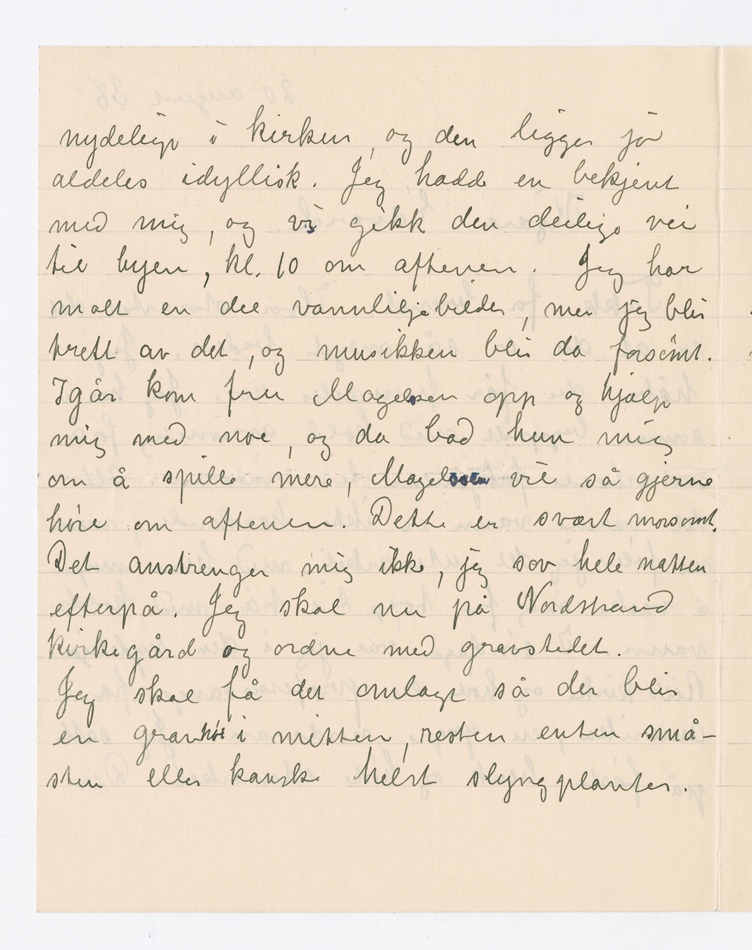 nydelige i kirken, og den ligger jo
aldeles idyllisk. Jeg hadde en bekjent
med mig, og vi gikk den deilige vei
til byen, kl. 10 om aftenen. Jeg har
malt en del vannliljebilder, men jeg blir
trett av det, og musikken blir da forsømt.
Igår kom fru Magelsen opp og hjalp
mig med noe, og da bad hun mig
om å spille mere, Magelssen vil så gjerne
høre om aftenen. Dette er svært morsomt.
Det anstrenger mig ikke, jeg sov hele natten
efterpå. Jeg skal nu på Nordstrand
kirkegård og ordne med gravstedet.
Jeg skal få det omlagt så der blir
en gravhøi i midten, resten enten små-
sten eller kanske helst slyngplanter.